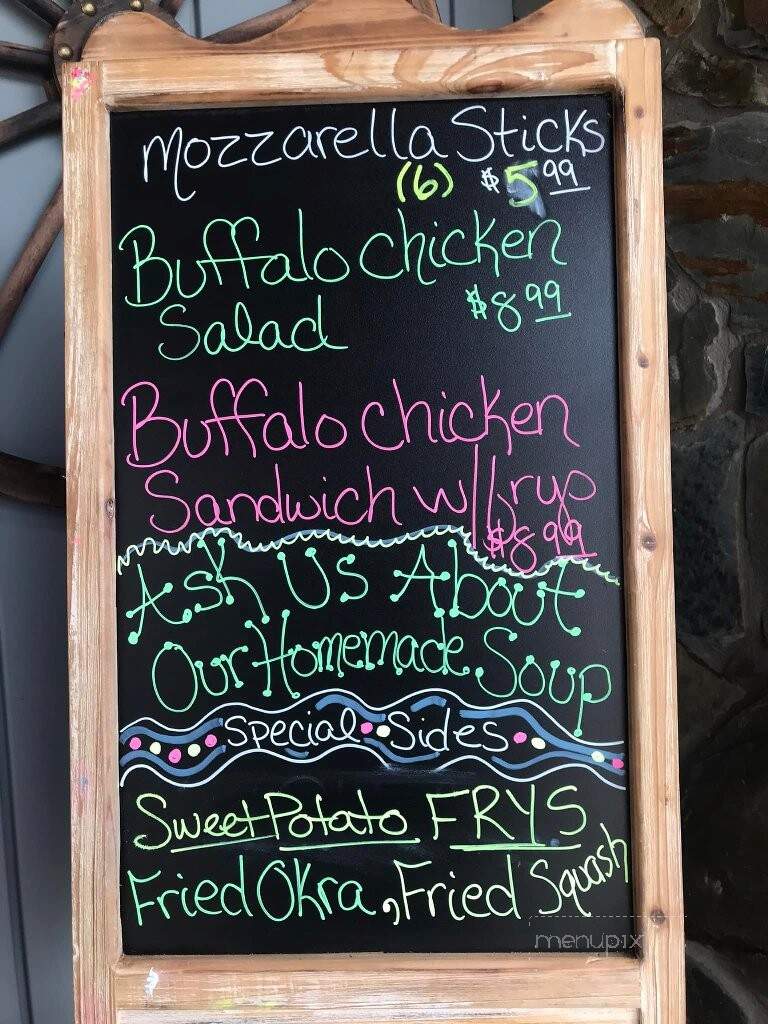 Mozzarella Sticks
(6) $5.99
Buffalo Chicken
Salad $8.99
Buffalo Chicken
Sandwich w/frys
$8.99
Ask Us About
Our Homemade Soup
Special Sides
Sweet Potato FRYS
Fried Okra, Fried Squash
menupix